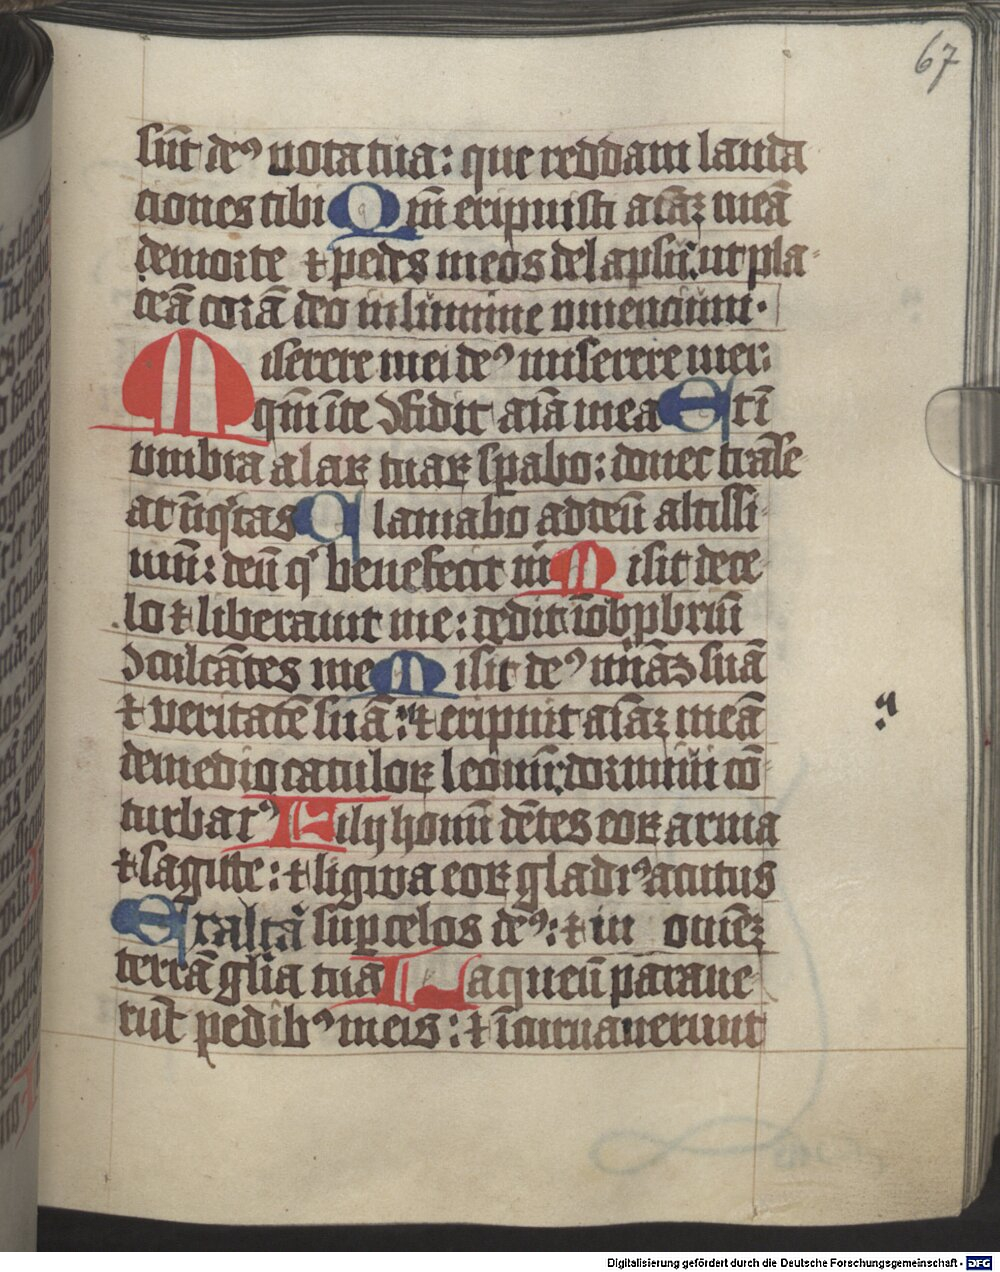 67
sūt deꝰ vota tua: que reddam lauda
tiones tibi Qm̄ eripuisti aīaꝫ meā
demorte ⁊ pedes meos delapsū: ut pla-
ceā corā deo inlumine viuencium.
Miserere mei deꝰ miserere mei:
qm̄ ī te ꝯfidit aīa mea Et ī
vmbra alaꝝ tuaꝝ spabo: donec trāse
at īiqͥtas Clamabo addeū altissi
mū: deū qͥ benefecit m̄ Misit dece-
lo ⁊ liberauit me: dedit ī obpbriū
ꝯculcātes me Misit deꝰ mīaꝫ suā
⁊ veritatē suā: ⁊ eripuit aīaꝫ meā
demedio catuloꝝ leonū: dormiui cō-
turbatꝰ Filij homī dētes eoꝝ arma
⁊ sagitte: ⁊ ligwa eoꝝ gladiꝰ acutus
Exaltā sup celos deꝰ: ⁊ in omēꝫ
terrā glīa tua Laqueū paraue-
rūt pedibꝰ meis: ⁊ īcuruauerunt
Digitalisierung gefördert durch die Deutsche Forschungsgemeinschaft - DFG